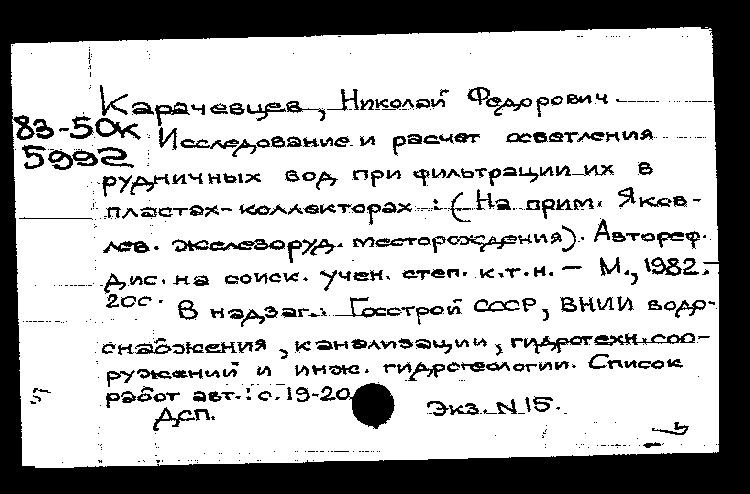 Карачевцев, Николай Федорович.
83-50к
5992
Исследование и расчет осветления
рудничных вод при фильтрации их в
пластах-коллекторах : (На прим. Яков-
лев. железоруд. месторождения). Автореф.
дис. на соиск. учен. степ. к.т.н. – М., 1982.-
20с.
В надзаг.: Госстрой СССР, ВНИИ водо-
снабжения, канализации, гидротехн. соо-
ружений и инж. гидрогеологии. Список
работ авт.: с.19-20
Дсп.
Экз. N 15.